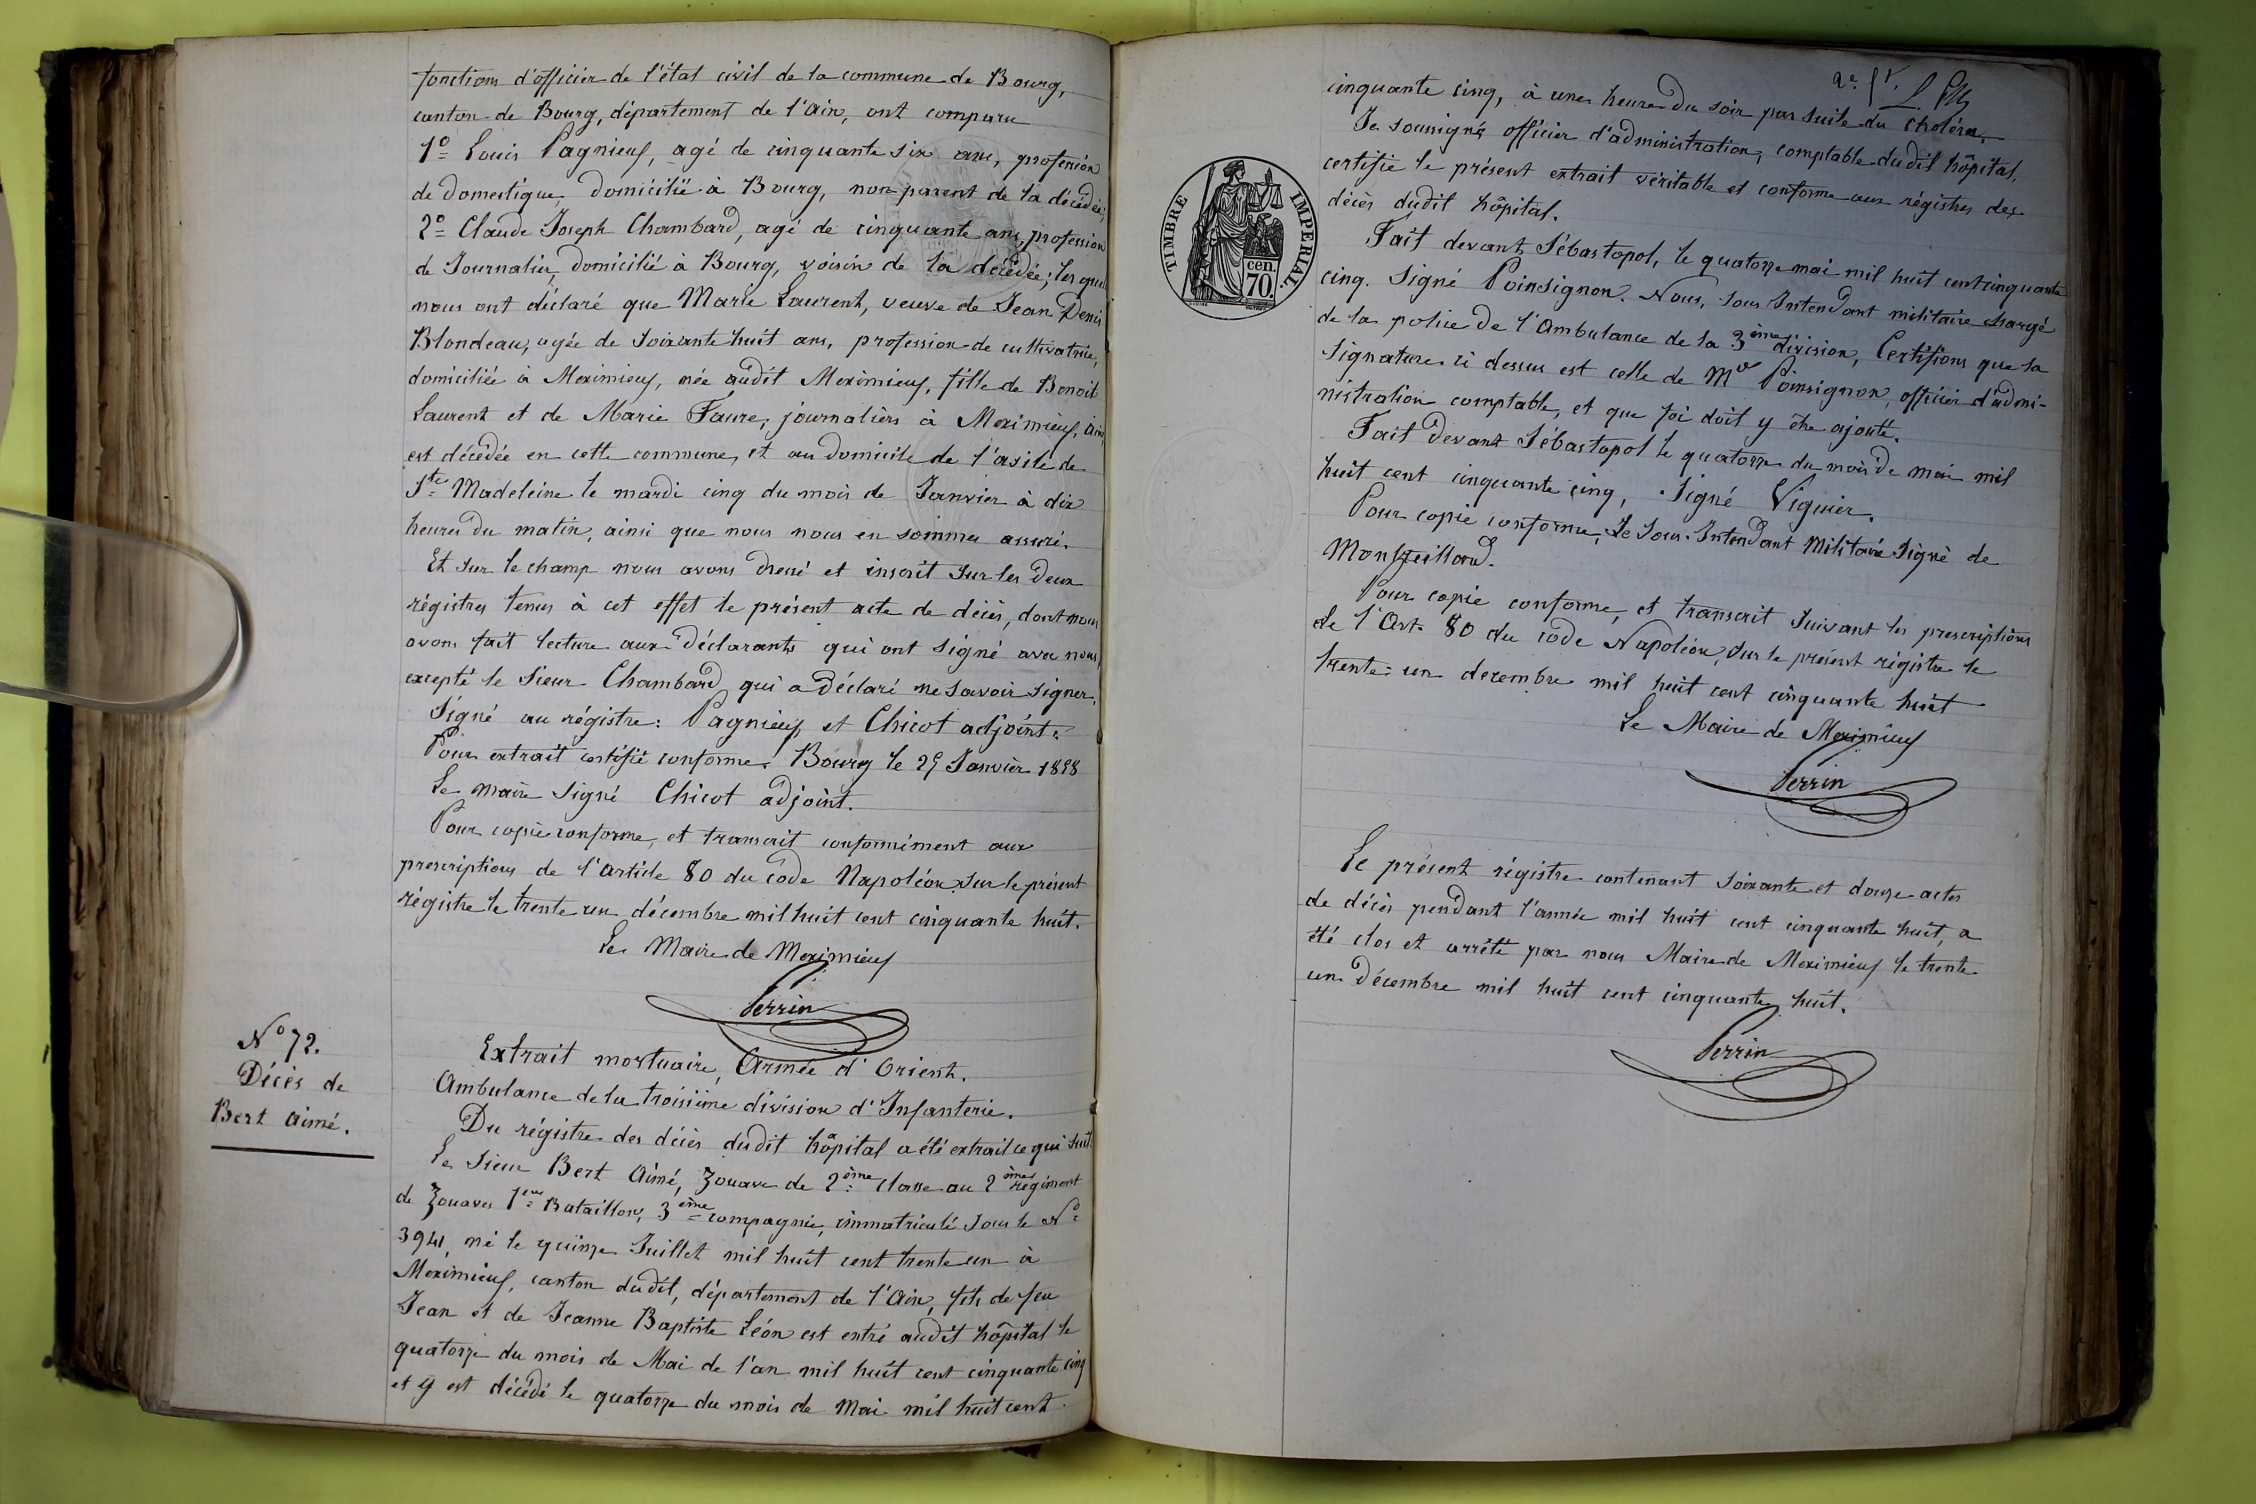 fonctions d'officier de l'état civil de la commune de Bourg,
canton de Bourg, département de l'Ain, ont comparu
1º Louis Pagnieux, agé de cinquante six ans, profession
de domestique, domicilié à Bourg, non parent de la décédée,
2º Claude Joseph Chambard, agé de cinquante ans, profession
de Journalier, domicilié à Bourg, voisin de la décédée; les quels
nous ont déclaré que Marie Laurent, veuve de Jean Denis
Blondeau, agée de soixante huit ans, profession de cultivatrice,
domiciliée à Meximieux, née audit Meximieux, fille de Benoit
Laurent et de Marie Faure, journaliers à Meximieux, Ain
est décédée en cette commune, et au domicile de l'asile de
Ste Madeleine le mardi cinq du mois de Janvier à dix
heures du matin, ainsi que nous nous en sommes assuré.
Et sur le champ nous avons dressé et inscrit sur les deux
régistres tenus à cet effet le présent acte de décès, dont nous
avons fait lecture aux déclarants qui ont signé avec nous,
excepté le Sieur Chambard qui a déclaré ne savoir signer.
Signé au régistre: Pagnieux et Chicot adjoint.
Pour extrait certifié conforme. Bourg le 25 Janvier 1858
Le maire signé Chicot adjoint.
Pour copie conforme, et transcrit conformément aux
prescriptions de l'article 80 du Code Napoléon, sur le présent
régistre le trente un décembre mil huit cent cinquante huit.
Le Maire de Meximieux
Perrin
Nº 72.
Décès de
Bert Aimé.
Extrait mortuaire, Armée d'Orient.
Ambulance de la troisième division d'Infanterie.
Du régistre des décès dudit hôpital a été extrait ce qui suit
Le Sieur Bert Aimé, Zouave de 2ème classe au 2ème régiment
de Zouaves 1er Bataillon, 3ème compagnie, immatriculé sous le Nº
3941, né le quinze Juillet mil huit cent trente un à
Meximieux, canton dudit, département de l'Ain, fils de feu
Jean et de Jeanne Baptiste Léon est entré audit hôpital le
quatorze du mois de Mai de l'an mil huit cent cinquante cinq
et y est décédé le quatorze du mois de Mai mil huit cent
cinquante cinq, à une heure du soir par suite du choléra.
Je soussigné officier d'administration, comptable dudit hôpital,
certifie le présent extrait véritable et conforme aux régistres des
décès dudit hôpital.
Fait devant Sébastopol, le quatorze mai mil huit cent cinquante
cinq. Signé Poinsignon. Nous, sous Intendant militaire chargé
de la police de l'Ambulance de la 3ème division, Certifions que la
signature ci dessus est celle de Mr Poinsignon, officier d'admi-
nistration comptable, et que foi doit y être ajouté.
Fait devant Sébastopol le quatorze du mois de mai mil
huit cent cinquante cinq, Signé Viguier.
Pour copie conforme, Le Sous-Intendant Militaire Signé de
Pour copie conforme, et transcrit suivant les prescriptions
de l'Art. 80 du code Napoléon, sur le présent régistre le
trente-un decembre mil huit cent cinquante huit
Le Maire de Meximieux
Perrin
Le présent régistre contenant soixante et douze actes
de décès pendant l'année mil huit cent cinquante huit, a
été clos et arrêté par nous Maire de Meximieux le trente
un Décembre mil huit cent cinquante huit.
Perrin
TIMBRE IMPERIAL.
cen.
70.